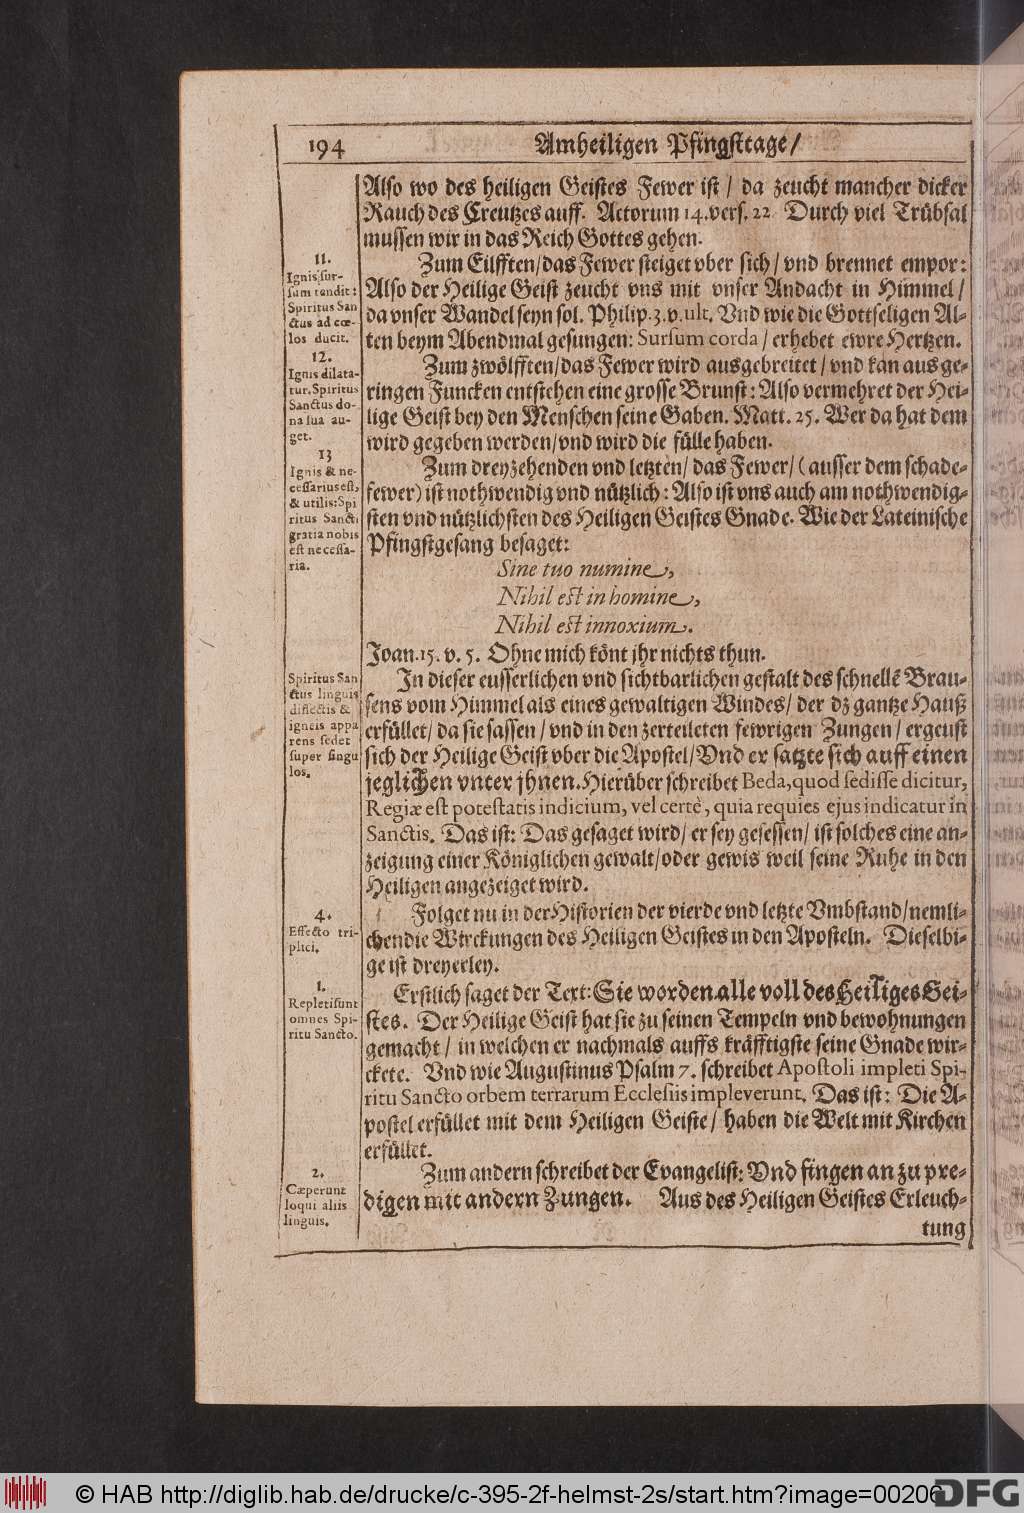 194 Am heiligen Pfingsttage/
Also wo des heiligen Geistes Fewer ist / da zeucht mancher dicker
Rauch des Creutzes auff. Actorum 14. vers. 22 Durch viel Trübsal
mussen wir in das Reich Gottes gehen.
11.
Ignis sur-
sum tendit:
Spiritus San
ctus ad cœ-
los ducit.
Zum Eilfften/das Fewer steiget vber sich/ vnd brennet empor:
Also der Heilige Geist zeucht vns mit vnser Andacht in Himmel/
da vnser Wandel seyn sol. Philip. 3. v. ult. Vnd wie die Gottseligen Al-
ten beym Abendmal gesungen: Sursum corda / erhebet ewre Hertzen.
12.
Ignis dilata-
tur, Spiritus
Sanctus do-
na sua au-
get.
Zum zwölfften/das Fewer wird ausgebreitet/ vnd kan aus ge-
ringen Funcken entstehen eine grosse Brunst: Also vermehret der Hei-
lige Geist bey den Menschen seine Gaben. Matt. 25. Wer da hat dem
wird gegeben werden/vnd wird die fülle haben.
13
Ignis & ne-
cessarius est,
& utilis: Spi
ritus Sancti
gratia nobis
est necessa-
ria.
Zum dreyzehenden vnd letzten/ das Fewer/ (ausser dem schade-
fewer) ist nothwendig vnd nützlich: Also ist vns auch am nothwendig-
sten vnd nützlichsten des Heiligen Geistes Gnade. Wie der Lateinische
Pfingstgesang besaget:
Sine tuo numine,
Nihil est in homine,
Nihil est innoxium.
Joan. 15. v. 5. Ohne mich könt jhr nichts thun.
Spiritus San
ctus linguis
dissectis &
igneis appa
rens sedet
super singu
los.
In dieser eusserlichen vnd sichtbarlichen gestalt des schnellē Brau-
sens vom Himmel als eines gewaltigen Windes/ der dz gantze Hauß
erfüllet/ da sie sassen/ vnd in den zerteileten fewrigen Zungen/ ergeust
sich der Heilige Geist vber die Apostel/ Vnd er satzte sich auff einen
jeglichen vnter jhnen. Hierüber schreibet Beda, quod sedisse dicitur,
Regiæ est potestatis indicium, vel certè, quia requies ejus indicatur in
Sanctis. Das ist: Das gesaget wird/ er sey gesessen/ ist solches eine an-
zeigung einer Königlichen gewalt/oder gewis weil seine Ruhe in den
Heiligen angezeiget wird.
4.
Effecto tri-
plici.
Folget nu in der Historien der vierde vnd letzte Vmbstand/nemli-
chen die Wirckungen des Heiligen Geistes in den Aposteln. Dieselbi-
ge ist dreyerley.
1.
Repleti sunt
omnes Spi-
ritu Sancto.
Erstlich saget der Text: Sie worden alle voll des Heiliges Gei-
stes. Der Heilige Geist hat sie zu seinen Tempeln vnd bewohnungen
gemacht/ in welchen er nachmals auffs kräfftigste seine Gnade wir-
ckete. Vnd wie Augustinus Psalm 7. schreibet Apostoli impleti Spi-
ritu Sancto orbem terrarum Ecclesiis impleverunt. Das ist: Die A-
postel erfüllet mit dem Heiligen Geiste/ haben die Welt mit Kirchen
erfüllet.
2.
Cæperunt
loqui aliis
linguis.
Zum andern schreibet der Evangelist: Vnd fingen an zu pre-
digen mit andern Zungen. Aus des Heiligen Geistes Erleuch-
tung
© HAB http://diglib.hab.de/drucke/c-395-2f-helmst-2s/start.htm?image=00206
DFG